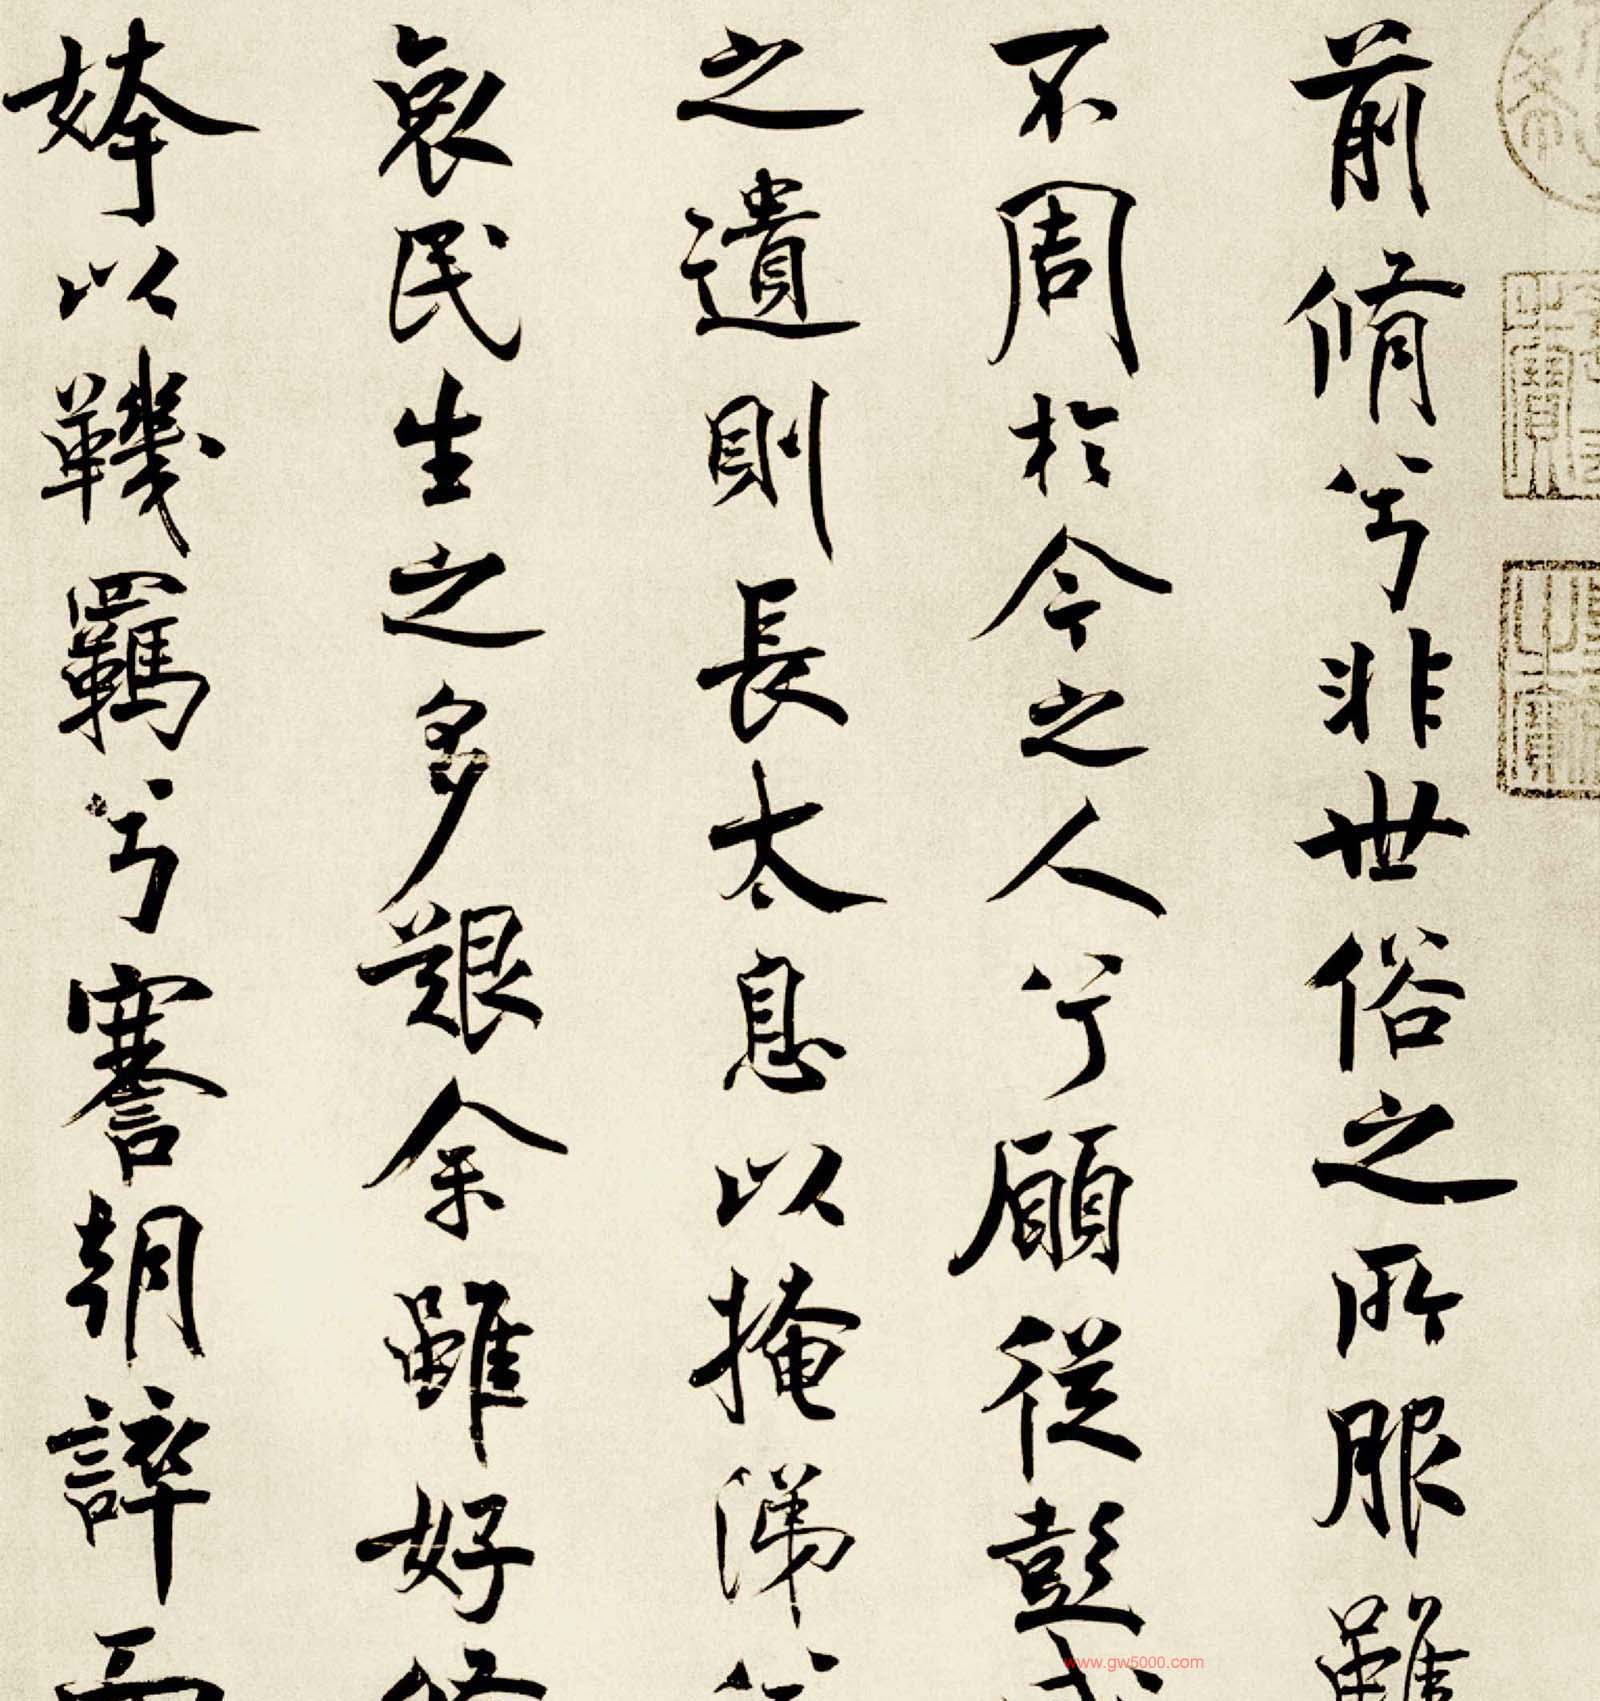 前脩兮非世俗之所服雖
不周於今之人兮願從彭咸
之遺則長太息以掩涕兮
哀民生之多艱余雖好修
姱以鞿羈兮謇朝誶而
www.gw5000.com